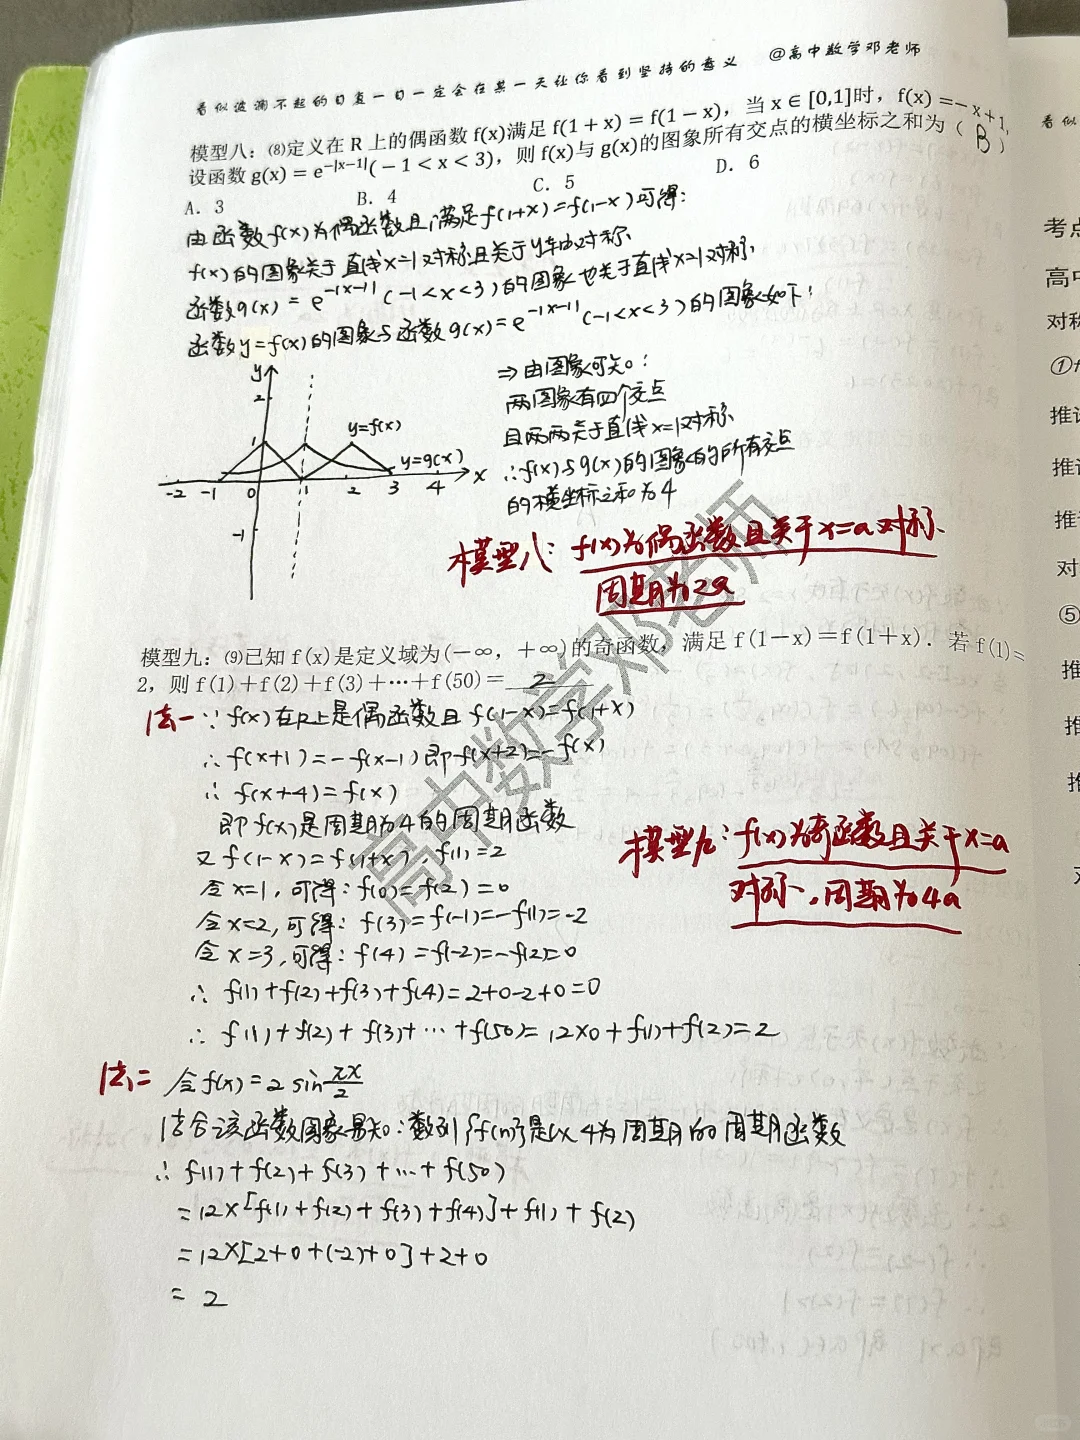 看似波澜不起的日复一日一定会在某一天让你看到坚持的意义 @高中数学邓老师
模型八：⑻定义在 R 上的偶函数 f(x)满足 f(1+x)=f(1−x)，当 x∈[0,1]时，f(x)=−x+1,
设函数 g(x)=e^{-|x-1|}(−1<x<3)，则 f(x)与 g(x)的图象所有交点的横坐标之和为（ B ）
A. 3 B. 4 C. 5 D. 6
由函数f(x)为偶函数且满足f(1+x)=f(1-x)可得:
f(x)的图象关于直线x=1对称且关于y轴对称.
函数g(x)=e^{-|x-1|}(-1<x<3)的图象也关于直线x=1对称.
函数y=f(x)的图象与函数g(x)=e^{-|x-1|}(-1<x<3)的图象如下:
y
2
1
y=f(x)
y=g(x)
-2 -1 0 1 2 3 4 x
-1
⇒由图象可知:
两图象有四个交点
且两两关于直线x=1对称
∴f(x)与g(x)的图象的所有交点
的横坐标之和为4
模型八: f(x)为偶函数且关于x=a对称.
周期为2a
模型九：⑼已知 f(x)是定义域为(−∞，+∞)的奇函数，满足 f(1−x)=f(1+x)．若 f(1)=
2，则 f(1)+f(2)+f(3)+…+f(50)= 2
法一 ∵ f(x)在R上是偶函数且 f(1-x)=f(1+x)
∴f(x+1)=-f(x-1)即f(x+2)=-f(x)
∴f(x+4)=f(x)
即f(x)是周期为4的周期函数
又f(1-x)=f(1+x), f(1)=2
令x=1,可得:f(0)=f(2)=0
令x=2,可得:f(3)=f(-1)=-f(1)=-2
令x=3,可得:f(4)=f(-2)=-f(2)=0
∴ f(1)+f(2)+f(3)+f(4)=2+0-2+0=0
∴ f(1)+f(2)+f(3)+…+f(50)=12×0+f(1)+f(2)=2
模型九:f(x)为奇函数且关于x=a
对称,周期为4a
法二 令f(x)=2sin πx/2
结合该函数图象易知:数列{f(n)}是以4为周期的周期函数
∴ f(1)+f(2)+f(3)+…+f(50)
=12×[f(1)+f(2)+f(3)+f(4)]+f(1)+f(2)
=12×[2+0+(-2)+0]+2+0
= 2
高中数学邓老师
看似
考点
高中
对称
①f
推论
推论
推论
对
⑤
推
推
推
对